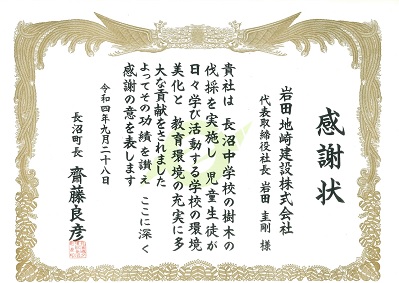 感謝状
岩田地崎建設株式会社
代表取締役社長 岩田圭剛 様
貴社は 長沼中学校の樹木の
伐採を実施し 児童生徒が
日々学び活動する学校の環境
美化と 教育環境の充実に多
大な貢献をされました
よってその功績を讃え ここに深く
感謝の意を表します
令和四年九月二十八日
長沼町長 齋藤良彦